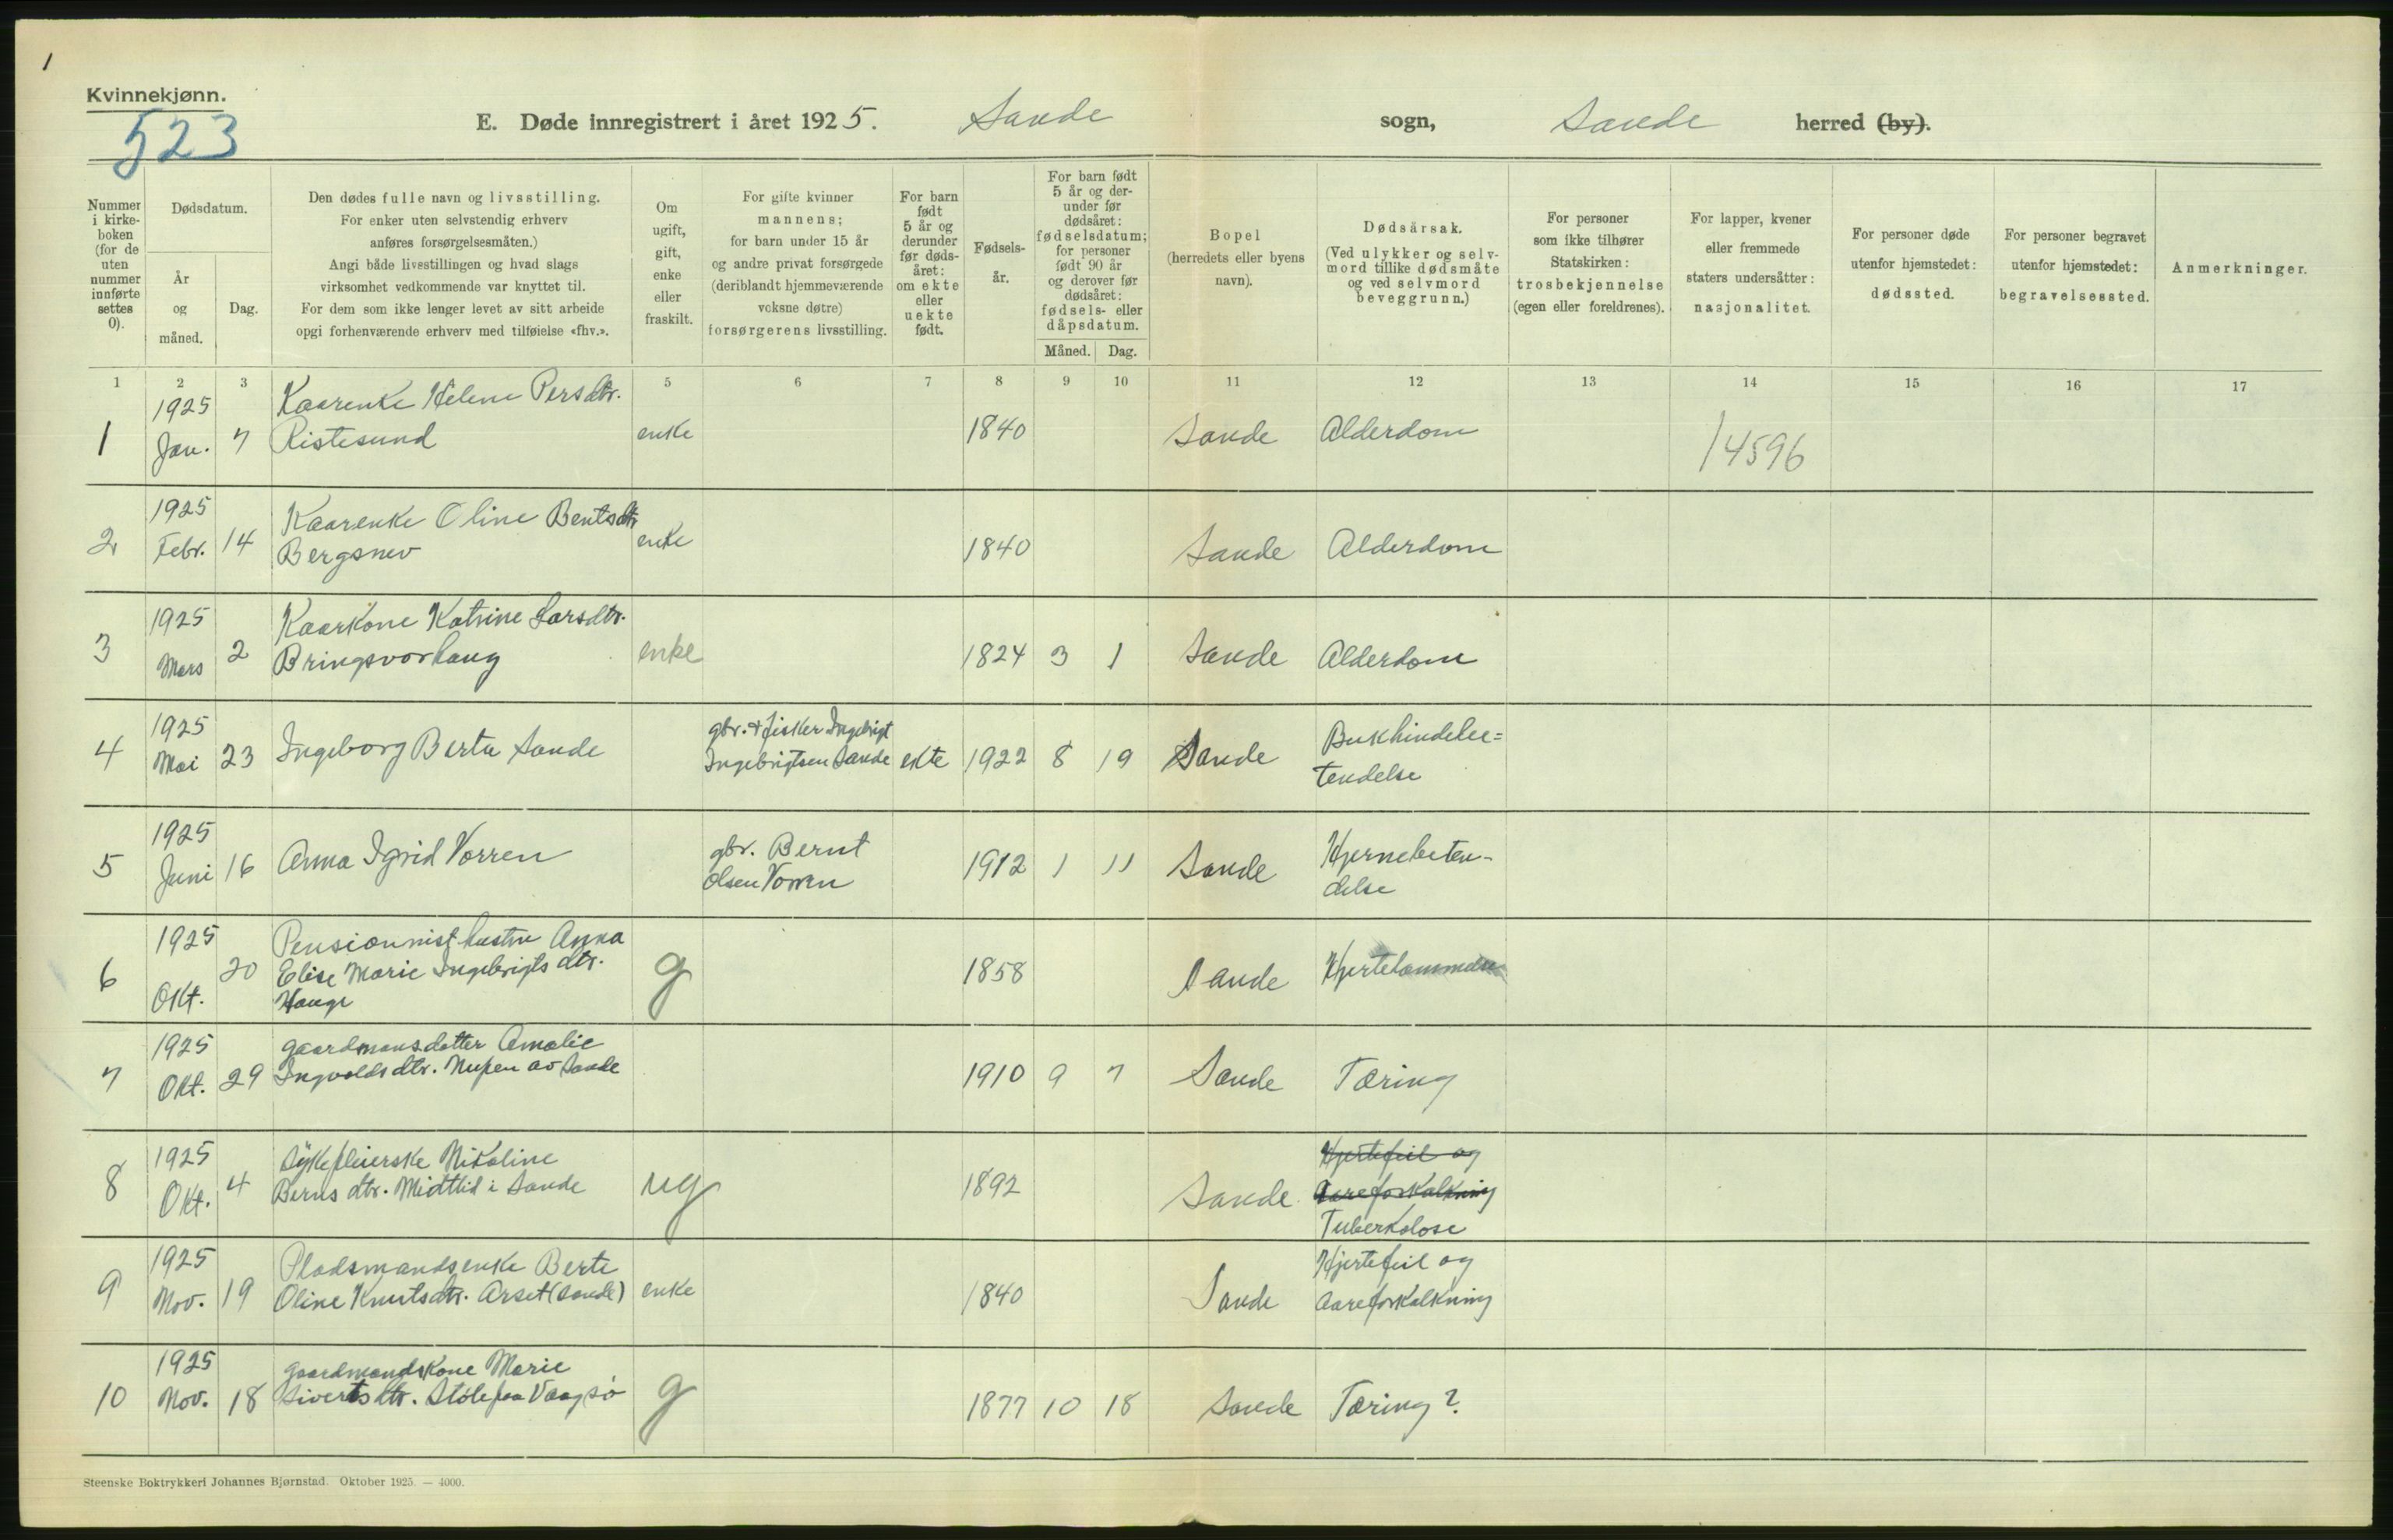 1
Kvinnekjønn.
523
E. Døde innregistrert i året 1925. Sande sogn, Sande herred (by).
Nummer i kirke-boken (for de uten nummer innførte settes 0).
Dødsdatum.
År og måned.
Dag.
Den dødes fulle navn og livsstilling.
For enker uten selvstendig erhverv
anføres forsørgelsesmåten.)
Angi både livsstillingen og hvad slags
virksomhet vedkommende var knyttet til.
For dem som ikke lenger levet av sitt arbeide
opgi forhenværende erhverv med tilføielse «fhv.».
Om ugift, gift, enke eller fraskilt.
For gifte kvinner
mannens;
for barn under 15 år
og andre privat forsørgede
(deriblandt hjemmeværende
voksne døtre)
forsørgerens livsstilling.
For barn født 5 år og derunder før døds-året: om ekte eller uekte født.
Fødsels-år.
For barn født
5 år og der-
under før
dødsåret:
fødselsdatum;
for personer
født 90 år
og derover før
dødsåret:
fødsels- eller
dåpsdatum.
Måned. Dag.
Bopel
(herredets eller byens
navn).
Dødsårsak.
(Ved ulykker og selv-
mord tillike dødsmåte
og ved selvmord
beveggrunn.)
For personer
som ikke tilhører
Statskirken:
trosbekjennelse
(egen eller foreldrenes).
For lapper, kvener
eller fremmede
staters undersåtter:
nasjonalitet.
For personer døde
utenfor hjemstedet:
dødssted.
For personer begravet
utenfor hjemstedet:
begravelsessted.
Anmerkninger.
1 2 3 5 6 7 8 9 10 11 12 13 14 15 16 17
1925 Kaarenke Helene Persdtr.
1 Jan. 7 Ristesund enke 1840 Sande Alderdom 14596
1925 Kaarenke Oline Bentsdtr
2 Febr. 14 Bergsnev enke 1840 Sande Alderdom
1925 Kaarkone Katrine Larsdtr.
3 Mars 2 Bringsvorhaug enke 1824 3 1 Sande Alderdom
1925 gbr. + fisker Ingebrigt Bukhindebe=
4 Mai 23 Ingeborg Berta Sande Ingebrigtsen Sande ekte 1922 8 19 Sande tendelse
1925 gbr. Bernt Hjernebeten-
5 Juni 16 Anna Igrid Vorren Olsen Vorren 1912 1 11 Sande delse
1925 Pensionnisthustru Anna
6 20 Elise Marie Ingebrigts dtr. g 1858 Sande Hjertelammelse
Okt. Hauge
1925 gaardmansdatter Amalie
7 Okt. 29 Ingvaldsdtr. Nupen av Sande 1910 9 7 Sande Tæring
1925 Sykepleierske Nikoline Hjertefeil og
8 Okt. 4 Berns dtr. Midttid i Sande ug 1892 Sande Aareforkalkning
Tuberkolose
1925 Pladsmandsenke Berte Hjertefeil og
9 Nov. 19 Oline Knutsdtr. Arset (Sande) enke 1840 Sande Aareforkalkning
1925 gaardmandskone Marie
10 Nov. 18 Siverts dtr. Støle paa Vaagsø g 1877 10 18 Sande Tæring?
Steenske Boktrykkeri Johannes Bjørnstad. Oktober 1925. — 4000.